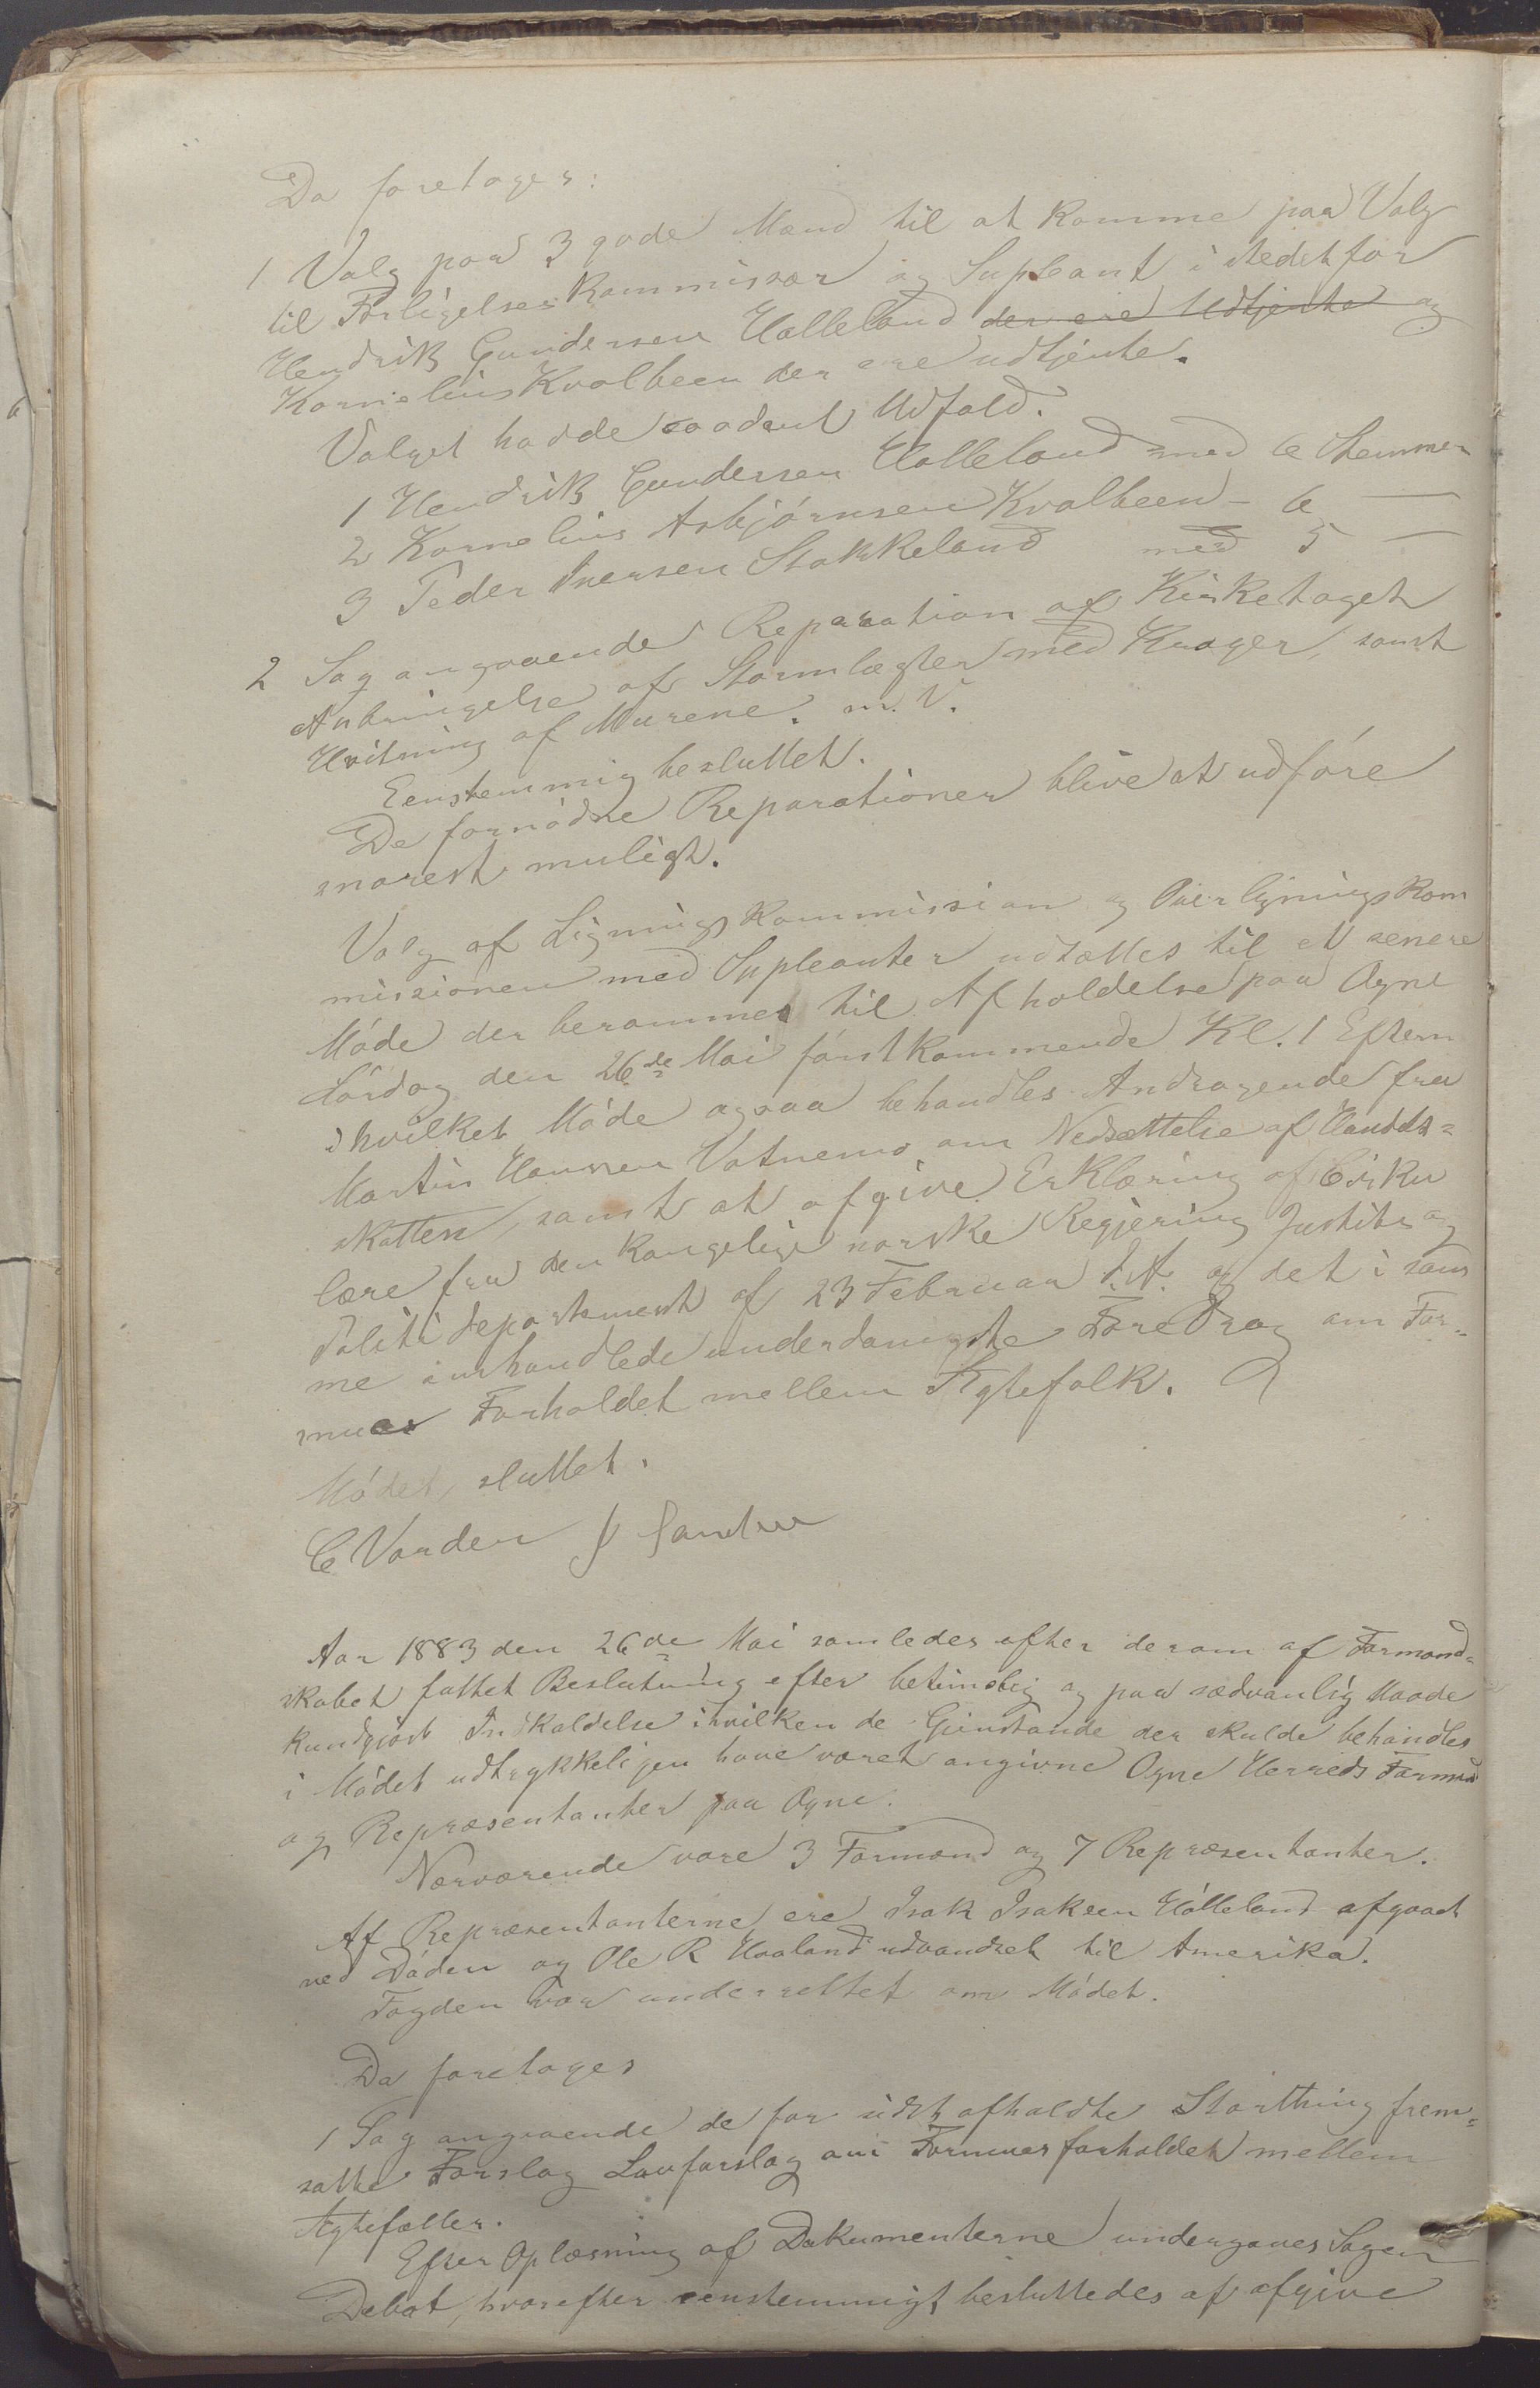 Da foretoges:
1 Valg paa 3 gode Mænd til at komme paa Valg
til Forligelseskommissær og Supleant i stedet for
Hendrik Gundersen Halleland der ere Udtjente og
Kornelius Kvalbeen der ere udtjente.
Valget hadde saadant Udfald.
1 Hendrik Gundersen Halleland med 6 Stemmer
2 Kornelius Asbjørnsen Kvalbeen - 6 —
3 Peder Iversen Stokkeland med 5 —
2 Sag angaaende Reparation af Kirketaget
Anbringelse af Stormlægter med Kroger, samt
Hvitning af Murene. m. V.
Eenstemmig besluttet.
De fornødne Reparationer blive at udføre
snarest muligt.
Valg af Ligningskommission og Overligningskom
missionen med Supleanter udsættes til et senere
Møde der berammes til Afholdelse paa Ogne
Lørdag den 26de Mai førstkommende Kl. 1 Efterm
i hvilket Møde ogsaa behandles Andragende fra
Martin Hansen Vatnemo om Nedsættelse af Handels=
skatten, samt at afgive Erklæring af Cirku
lære fra den kongelige norske Regjering Justits og
Politidepartement af 23 Februar d. A. og det i sam
me innhandlede underdanigste Foredrag om For=
mues Forholdet mellem Ægtefolk.
Mødet sluttet.
C Varden
Aar 1883 den 26de Mai samledes efter derom af Formand=
skabet fattet Beslutning efter betimelig og paa sædvanlig Maade
kundgjort Indkaldelse i hvilken de Gjenstande der skulde behandles
i Mødet udtrykkeligen have været angivne Ogne Herreds Formænd
og Repræsentanter paa Ogne.
Nærværende vare 3 Formænd og 7 Repræsentanter.
Af Repræsentanterne ere Isak Isaksen Hølleland afgaaet
ved Døden og Ole R Haaland udvandret til Amerika.
Fogden var underrettet om Mødet.
Da foretoges
1 Sag angaaende de for sidst afholdte Storthing frem=
satte Forslag Lovforslag om Formuesforholdet mellem
Ægtefæller.
Efter Oplæsning af Dokumenterne underganes Sagen
Debat, hvorefter eenstemmigt besluttedes af afgive